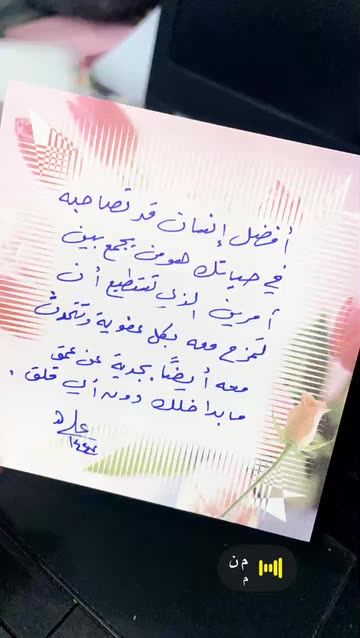 أفضل إنسان قد تصاحبه
في حياتك هو من يجمع بين
أمرين الذي تستطيع أن
تمزح معه بكل عفوية وتتحدث
معه أيضًا بجدية عن عمق
ما بداخلك دون أي قلق .
م ن
م